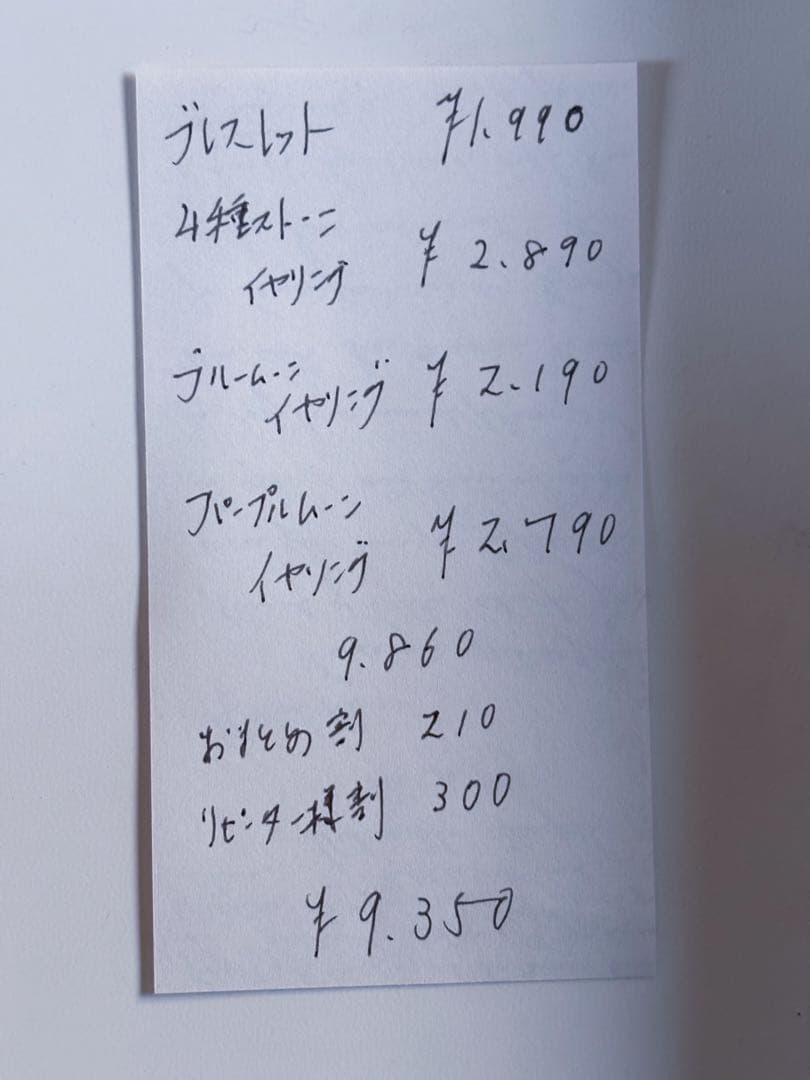 ブレスレット ¥1.990
4種ストーン
イヤリング ¥2.890
ブルームーン
イヤリング ¥2.190
パープルムーン
イヤリング ¥2.790
9.860
おまとめ割 210
リピーター様割 300
¥9.350